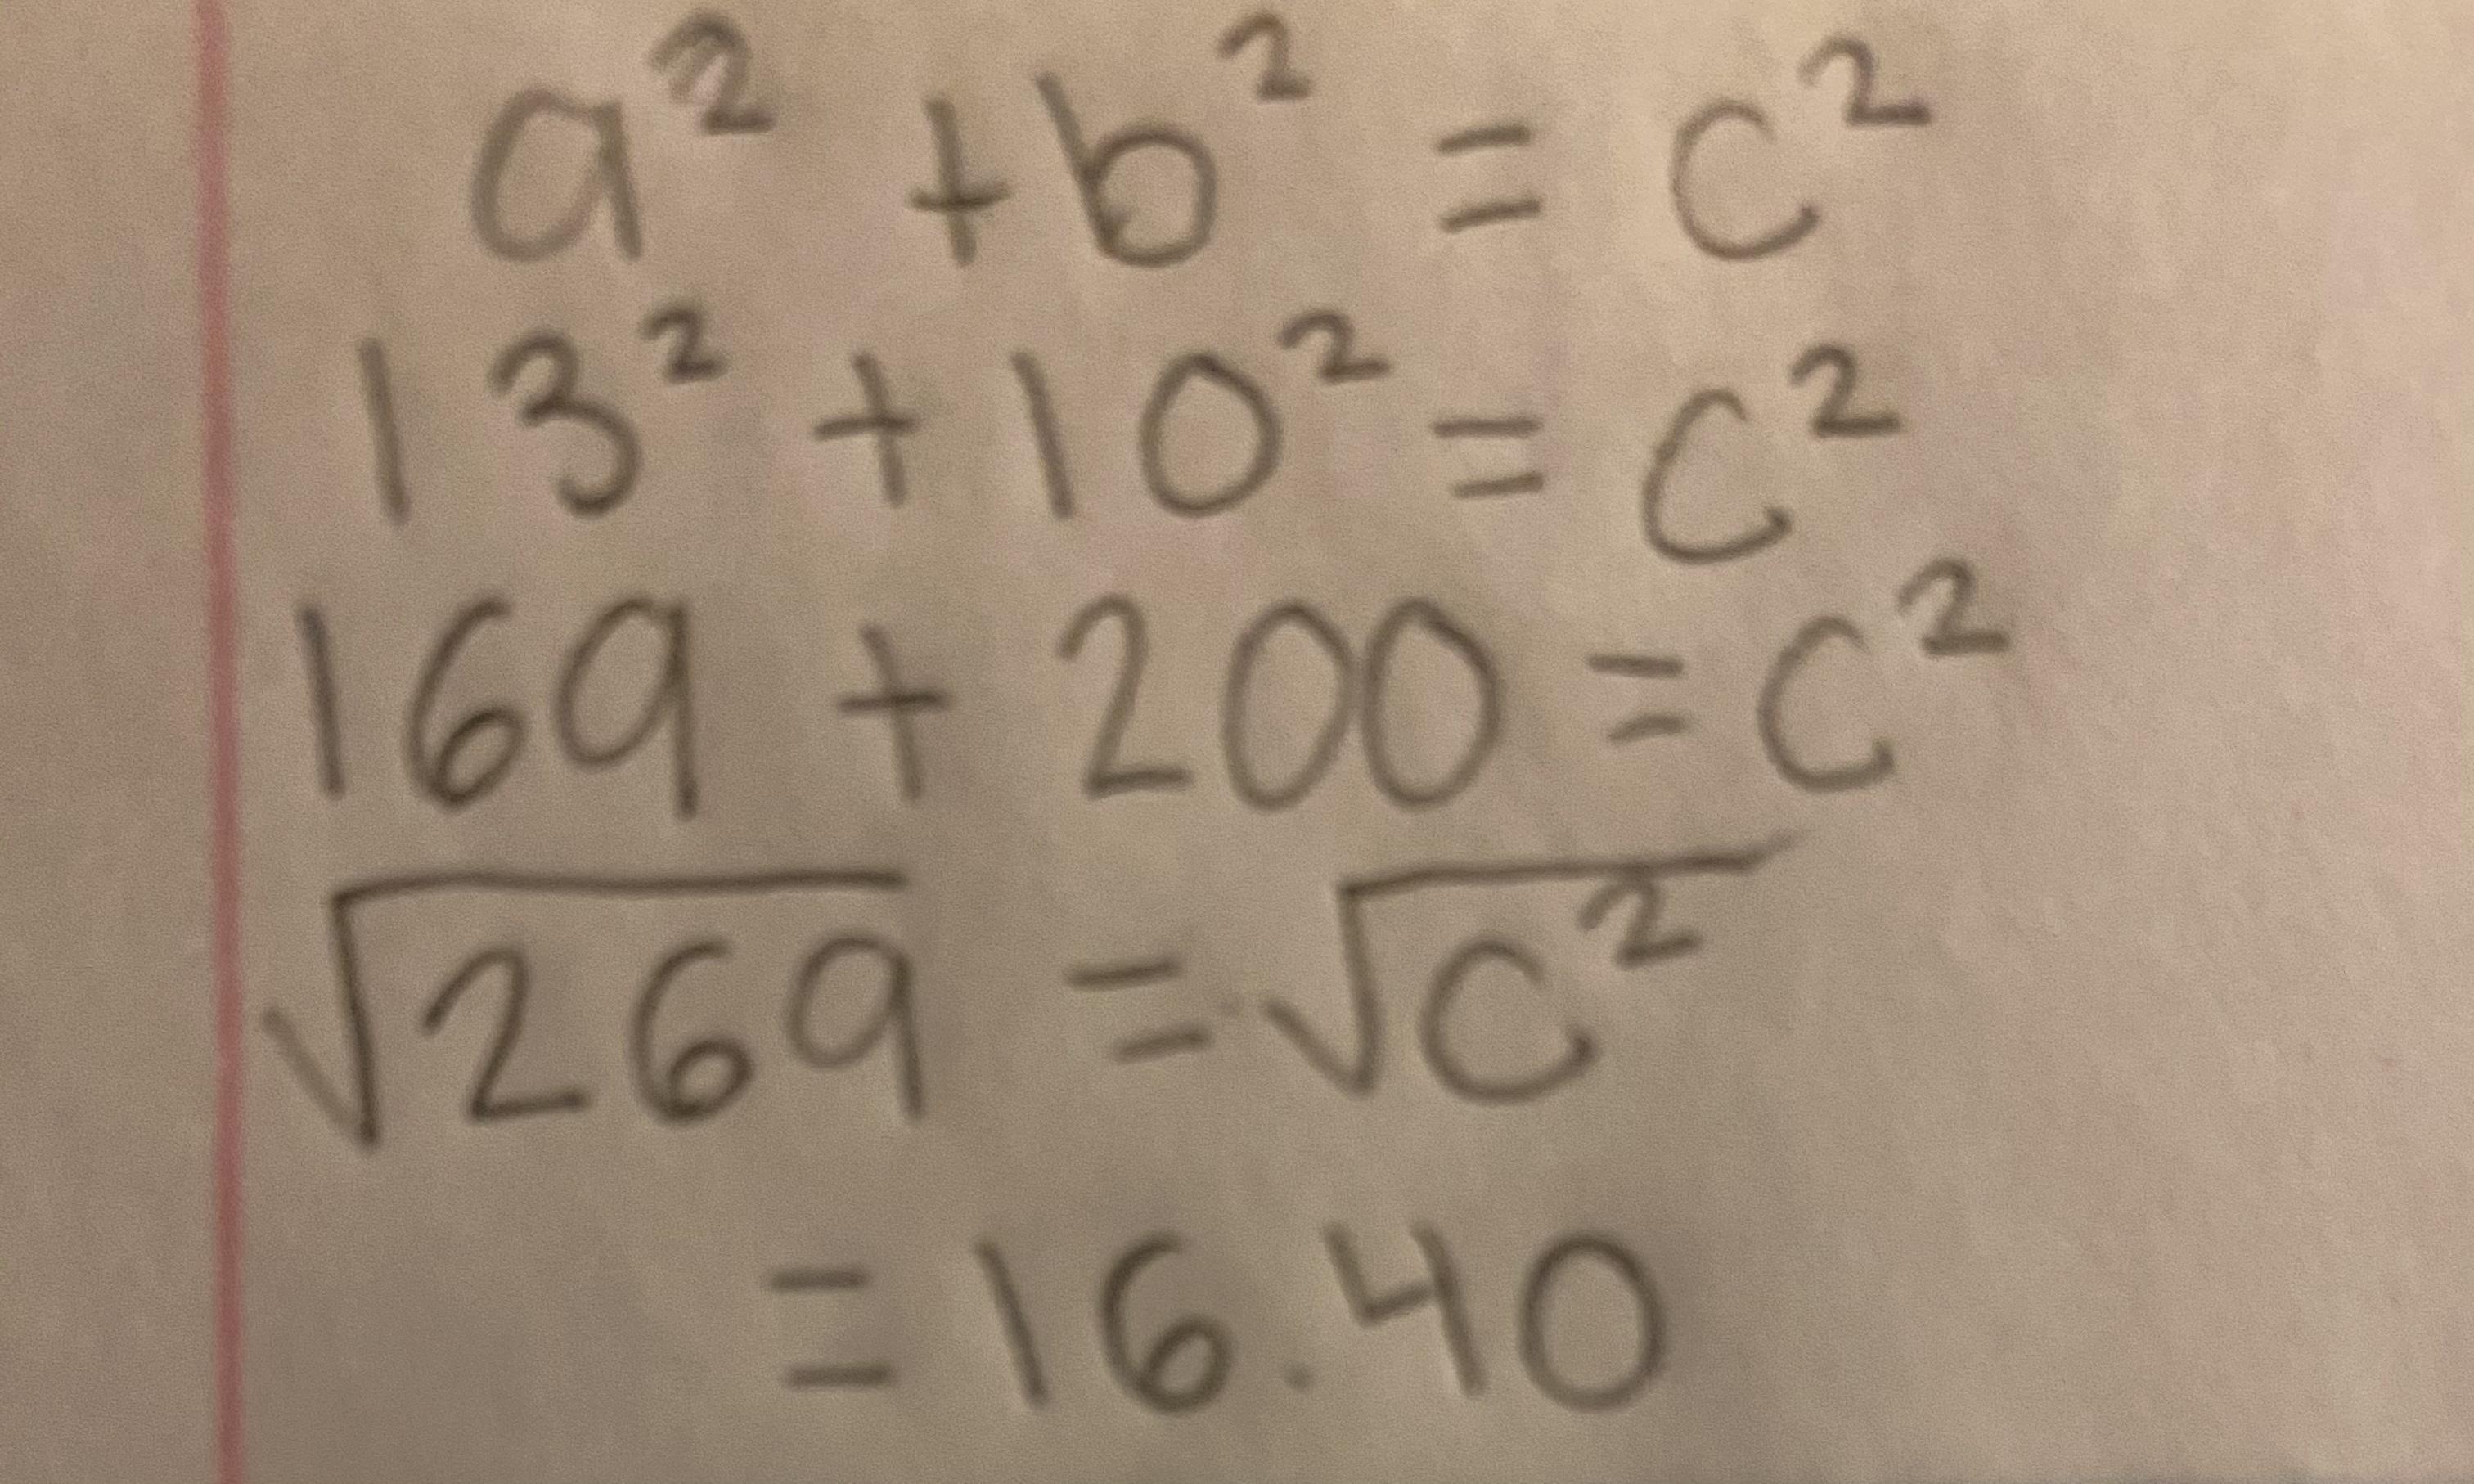 a² + b² = c²
13² + 10² = c²
169 + 200 = c²
√269 = √c²
= 16.40